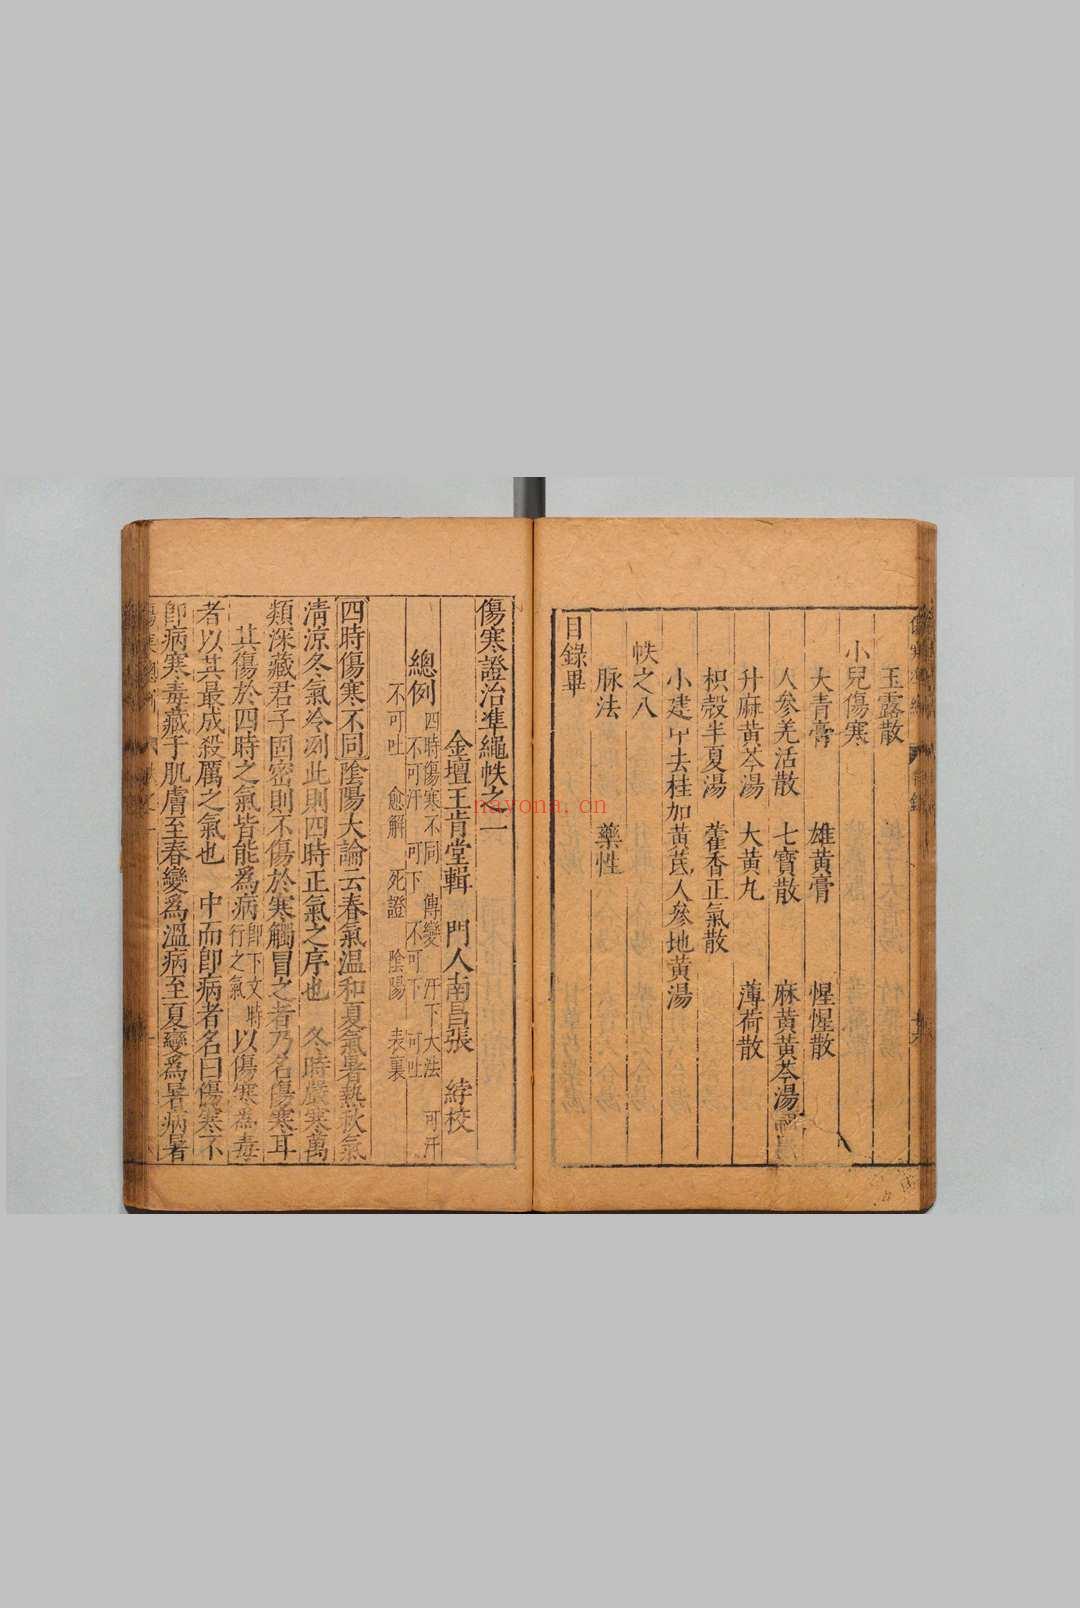 玉露散
小兒傷寒
大青膏 雄黃膏 惺惺散
人參羌活散 七寶散 麻黃黃芩湯
升麻黃芩湯 大黃丸 薄荷散
枳殼半夏湯 藿香正氣散
小建中去桂加黃芪人參地黃湯
帙之八
脈法 藥性
目錄畢
傷寒證治準繩帙之一
金壇王肯堂輯 門人南昌張 綍校
總例 四時傷寒不同 傳變 汗下大法 可汗
不可汗 可下 不可下 可吐
不可吐 愈解 死證 陰陽 表裏
四時傷寒不同陰陽大論云春氣温和夏氣暑熱秋氣
清涼冬氣冷冽此則四時正氣之序也 冬時嚴寒萬
類深藏君子固密則不傷於寒觸冒之者乃名傷寒耳
其傷於四時之氣皆能爲病即下文時行之氣以傷寒爲毒
者以其最成殺厲之氣也 中而即病者名曰傷寒不
即病寒毒藏于肌膚至春變爲溫病至夏變爲暑病暑
nayona.cn